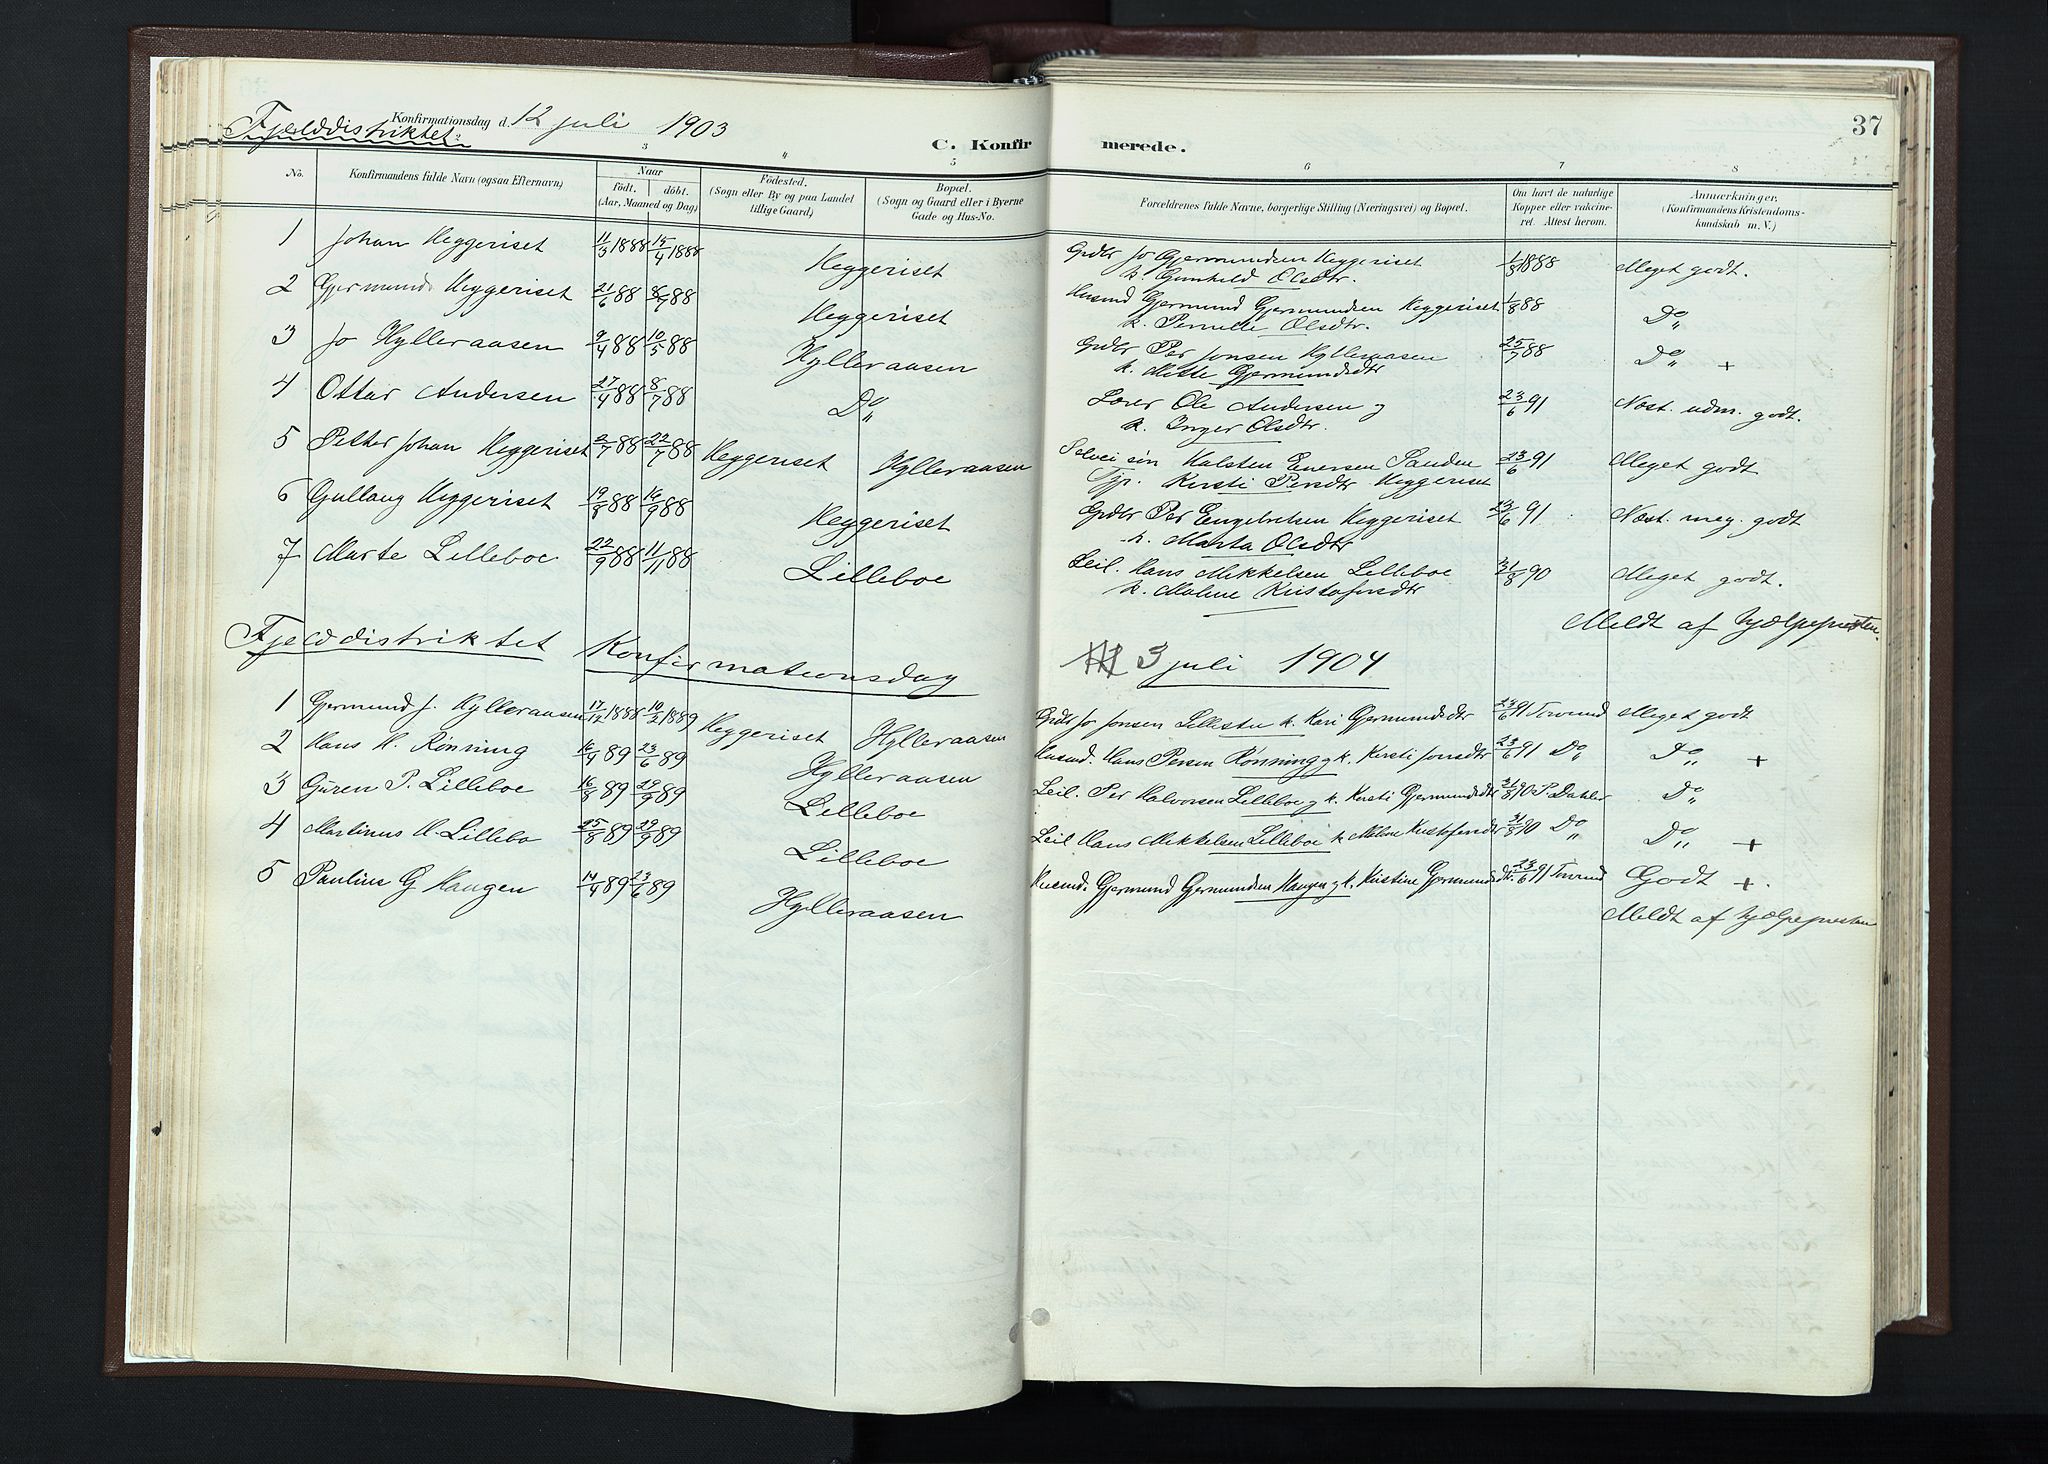 Fjelddistriktet Konfirmationsdag d. 12 juli 1903
37
C. Konfirmerede.
2 3 4 5 6 7 8
No. Konfirmandens fulde Navn (ogsaa Efternavn) Naar født. døbt. (Aar, Maaned og Dag) Fødested. (Sogn eller By og paa Landet tillige Gaard) Bopæl. (Sogn og Gaard eller i Byerne Gade og Hus-No. Forældrenes fulde Navne, borgerlige Stilling (Næringsvei) og Bopæl. Om havt de naturlige Kopper eller vakcineret. Attest herom. Anmærkninger. (Konfirmandens Kristendomskundskab m. V.)
1 Johan Heggeriset 11/3 1888 15/4 1888 Heggeriset Grdbr Jo Gjermundsen Heggeriset 1/8 1888 Meget godt.
k. Gunhild Olsdtr.
2 Gjermund Heggeriset 21/6 88 8/7 88 Heggeriset Husmd Gjermund Gjermundsen Heggeriset 1/8 88 Do
k. Pernille Olsdtr.
3 Jo Hylleraasen 9/4 88 10/5 88 Hylleraasen Grdbr Per Jonsen Hylleraasen 25/7 88 Do +
k. Mette Gjermundsdtr
4 Ottar Andersen 27/4 88 8/7 88 Do Lærer Ole Andersen og 23/6 91 Næst. udm. godt.
k. Inger Olsdtr.
5 Petter Johan Heggeriset 2/7 88 22/7 88 Heggeriset Hylleraasen Selvei søn Halsten Enersen Sanden 23/6 91 Meget godt
Tjp. Kersti Persdtr Heggeriset
6 Gullaug Heggeriset 19/8 88 16/9 88 Heggeriset Grdbr Per Engebretsen Heggeriset 23/6 91 Næst. meg. godt
k. Marta Olsdtr
7 Marte Lilleboe 22/9 88 11/11 88 Lilleboe Leil. Hans Mikkelsen Lilleboe 31/8 90 Meget godt.
k. Malene Kristofersdtr
Meldt af hjælpepresten.
Fjelddistriktet Konfirmationsdag 3 juli 1904
1 Gjermund J. Hylleraasen 17/12 1888 10/2 1889 Heggeriset Hylleraasen Grdb Jo Jonsen Lillestu k. Kari Gjermundsdtr 23/6 91 Meget godt
2 Hans H. Rønning 16/4 89 23/6 89 Hylleraasen Husmd. Hans Persen Rønning og k. Kersti Jonsdtr 23/6 91 Do Do +
3 Guren P. Lilleboe 16/8 89 29/9 89 Lilleboe Leil. Per Halvorsen Lilleboe og k. Kersti Gjermundsdtr 31/8 90 P. Dahler Do
4 Martinus H. Lillebo 25/8 89 29/9 89 Lilleboe Leil Hans Mikkelsen Lilleboe k Malene Kristofersdtr 31/8 90 Do Do +
5 Paulius G Haugen 14/4 89 23/6 89 Hylleraasen Husmd. Gjermund Gjermundsen Haugen og k. Kristine Gjermundsdtr. 23/6 91 Godt +.
Meldt af hjælpepresten